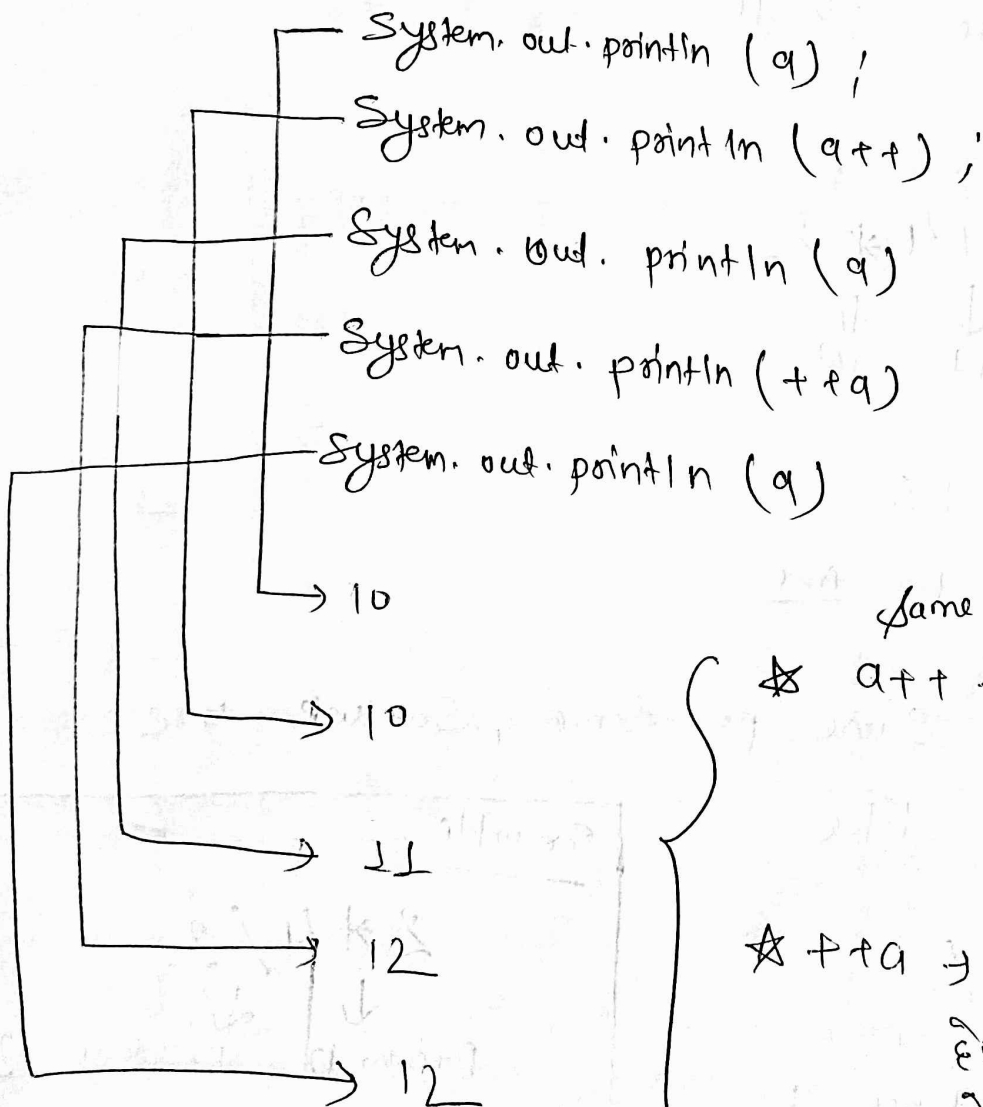 System. out. println (a) ;
System. out. println (a++) ;
System. out. println (a)
System. out. println (++a)
System. out. println (a)
10
10
11
12
12
Same
☆ a++
☆ ++a →